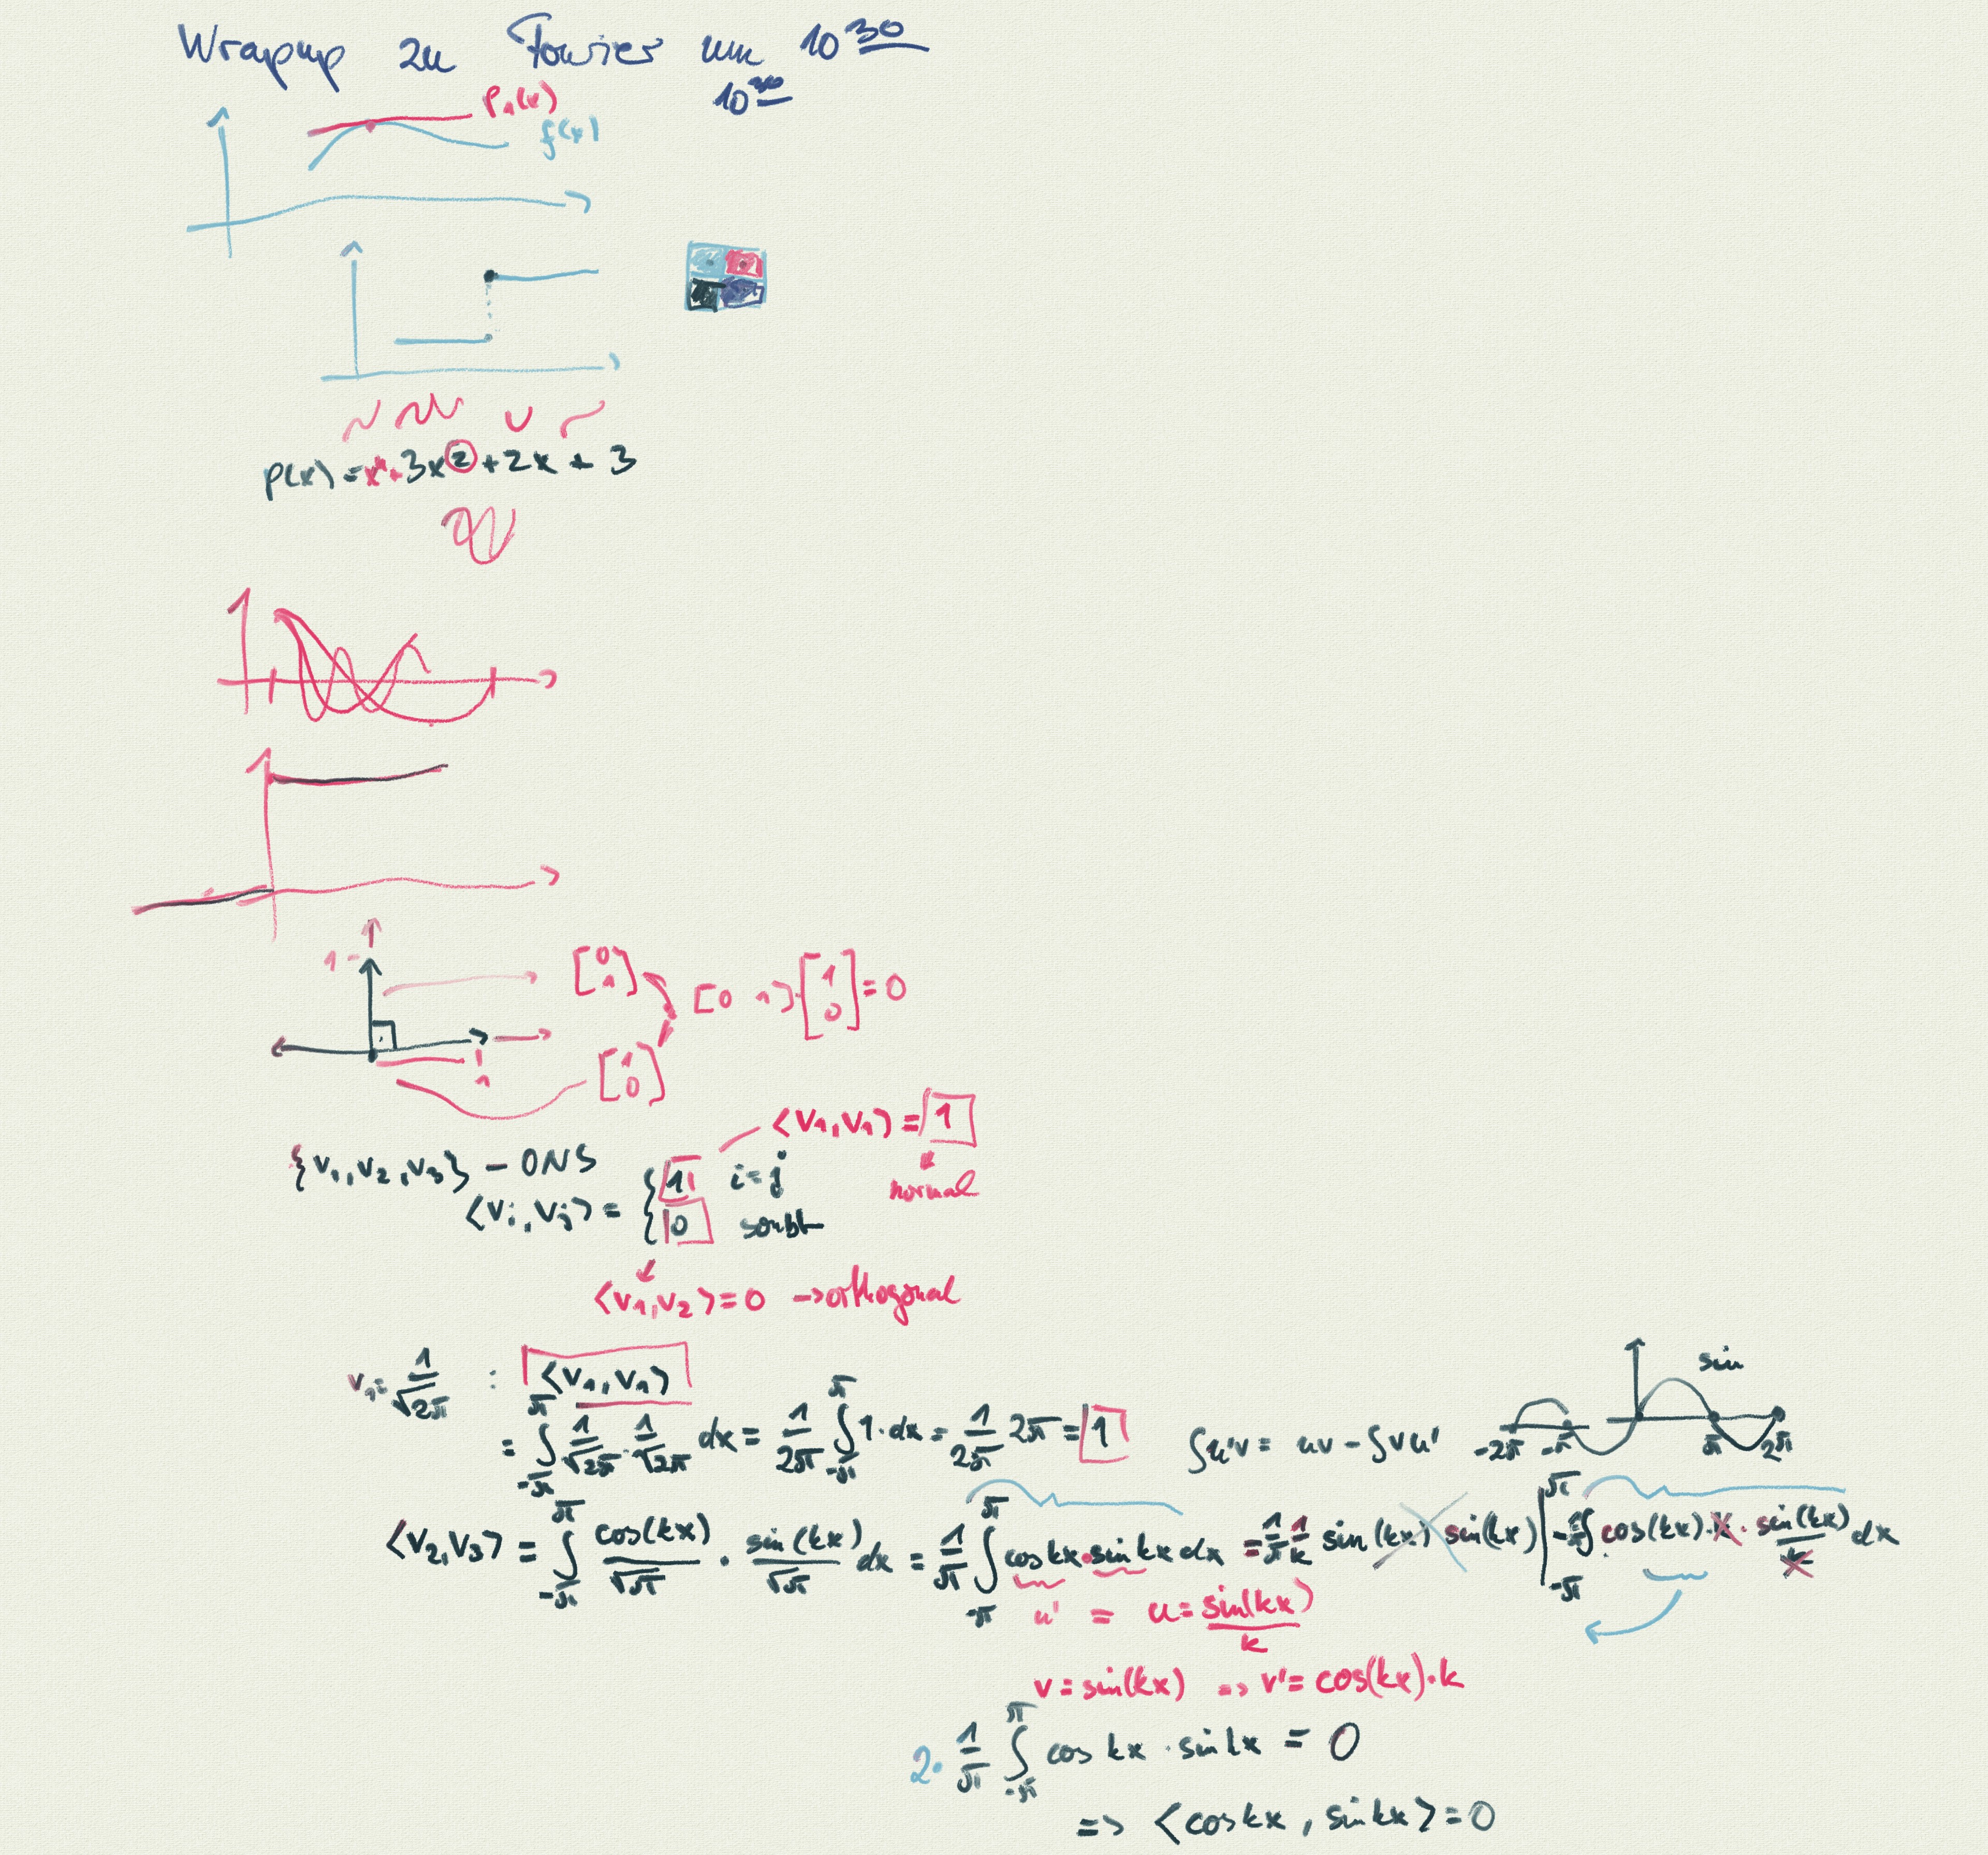 Wrapup zu Fourier um 10³⁰
10³⁰
p₁(x)
f(x)
p(x) = x⁴+ 3x² + 2x + 3
1
[0 1]
[0 1]·[1 0] = 0
1
[1 0]
⟨v₁,v₁⟩ = 1
{v₁,v₂,v₃} – ONS
⟨vᵢ,vⱼ⟩ = { 1 i=j
normal
0 sonst
⟨v₁,v₂⟩=0 → orthogonal
v₁= 1/√2π : ⟨v₁,v₁⟩
sin
= ∫_{-π}^{π} 1/√2π · 1/√2π dx = 1/2π ∫_{-π}^{π} 1·dx = 1/2π 2π = 1
∫u'v = uv - ∫vu'
-2π -π π 2π
⟨v₂,v₃⟩ = ∫_{-π}^{π} cos(kx)/√π · sin(kx)/√π dx = 1/π ∫_{-π}^{π} cos kx · sin kx dx = 1/π 1/k sin(kx) sin(kx) |_{-π}^{π} - 1/π ∫ cos(kx)·k · sin(kx)/k dx
u' = u = sin(kx)/k
v = sin(kx) => v' = cos(kx)·k
2· 1/π ∫_{-π}^{π} cos kx · sin kx = 0
=> ⟨cos kx , sin kx⟩ = 0